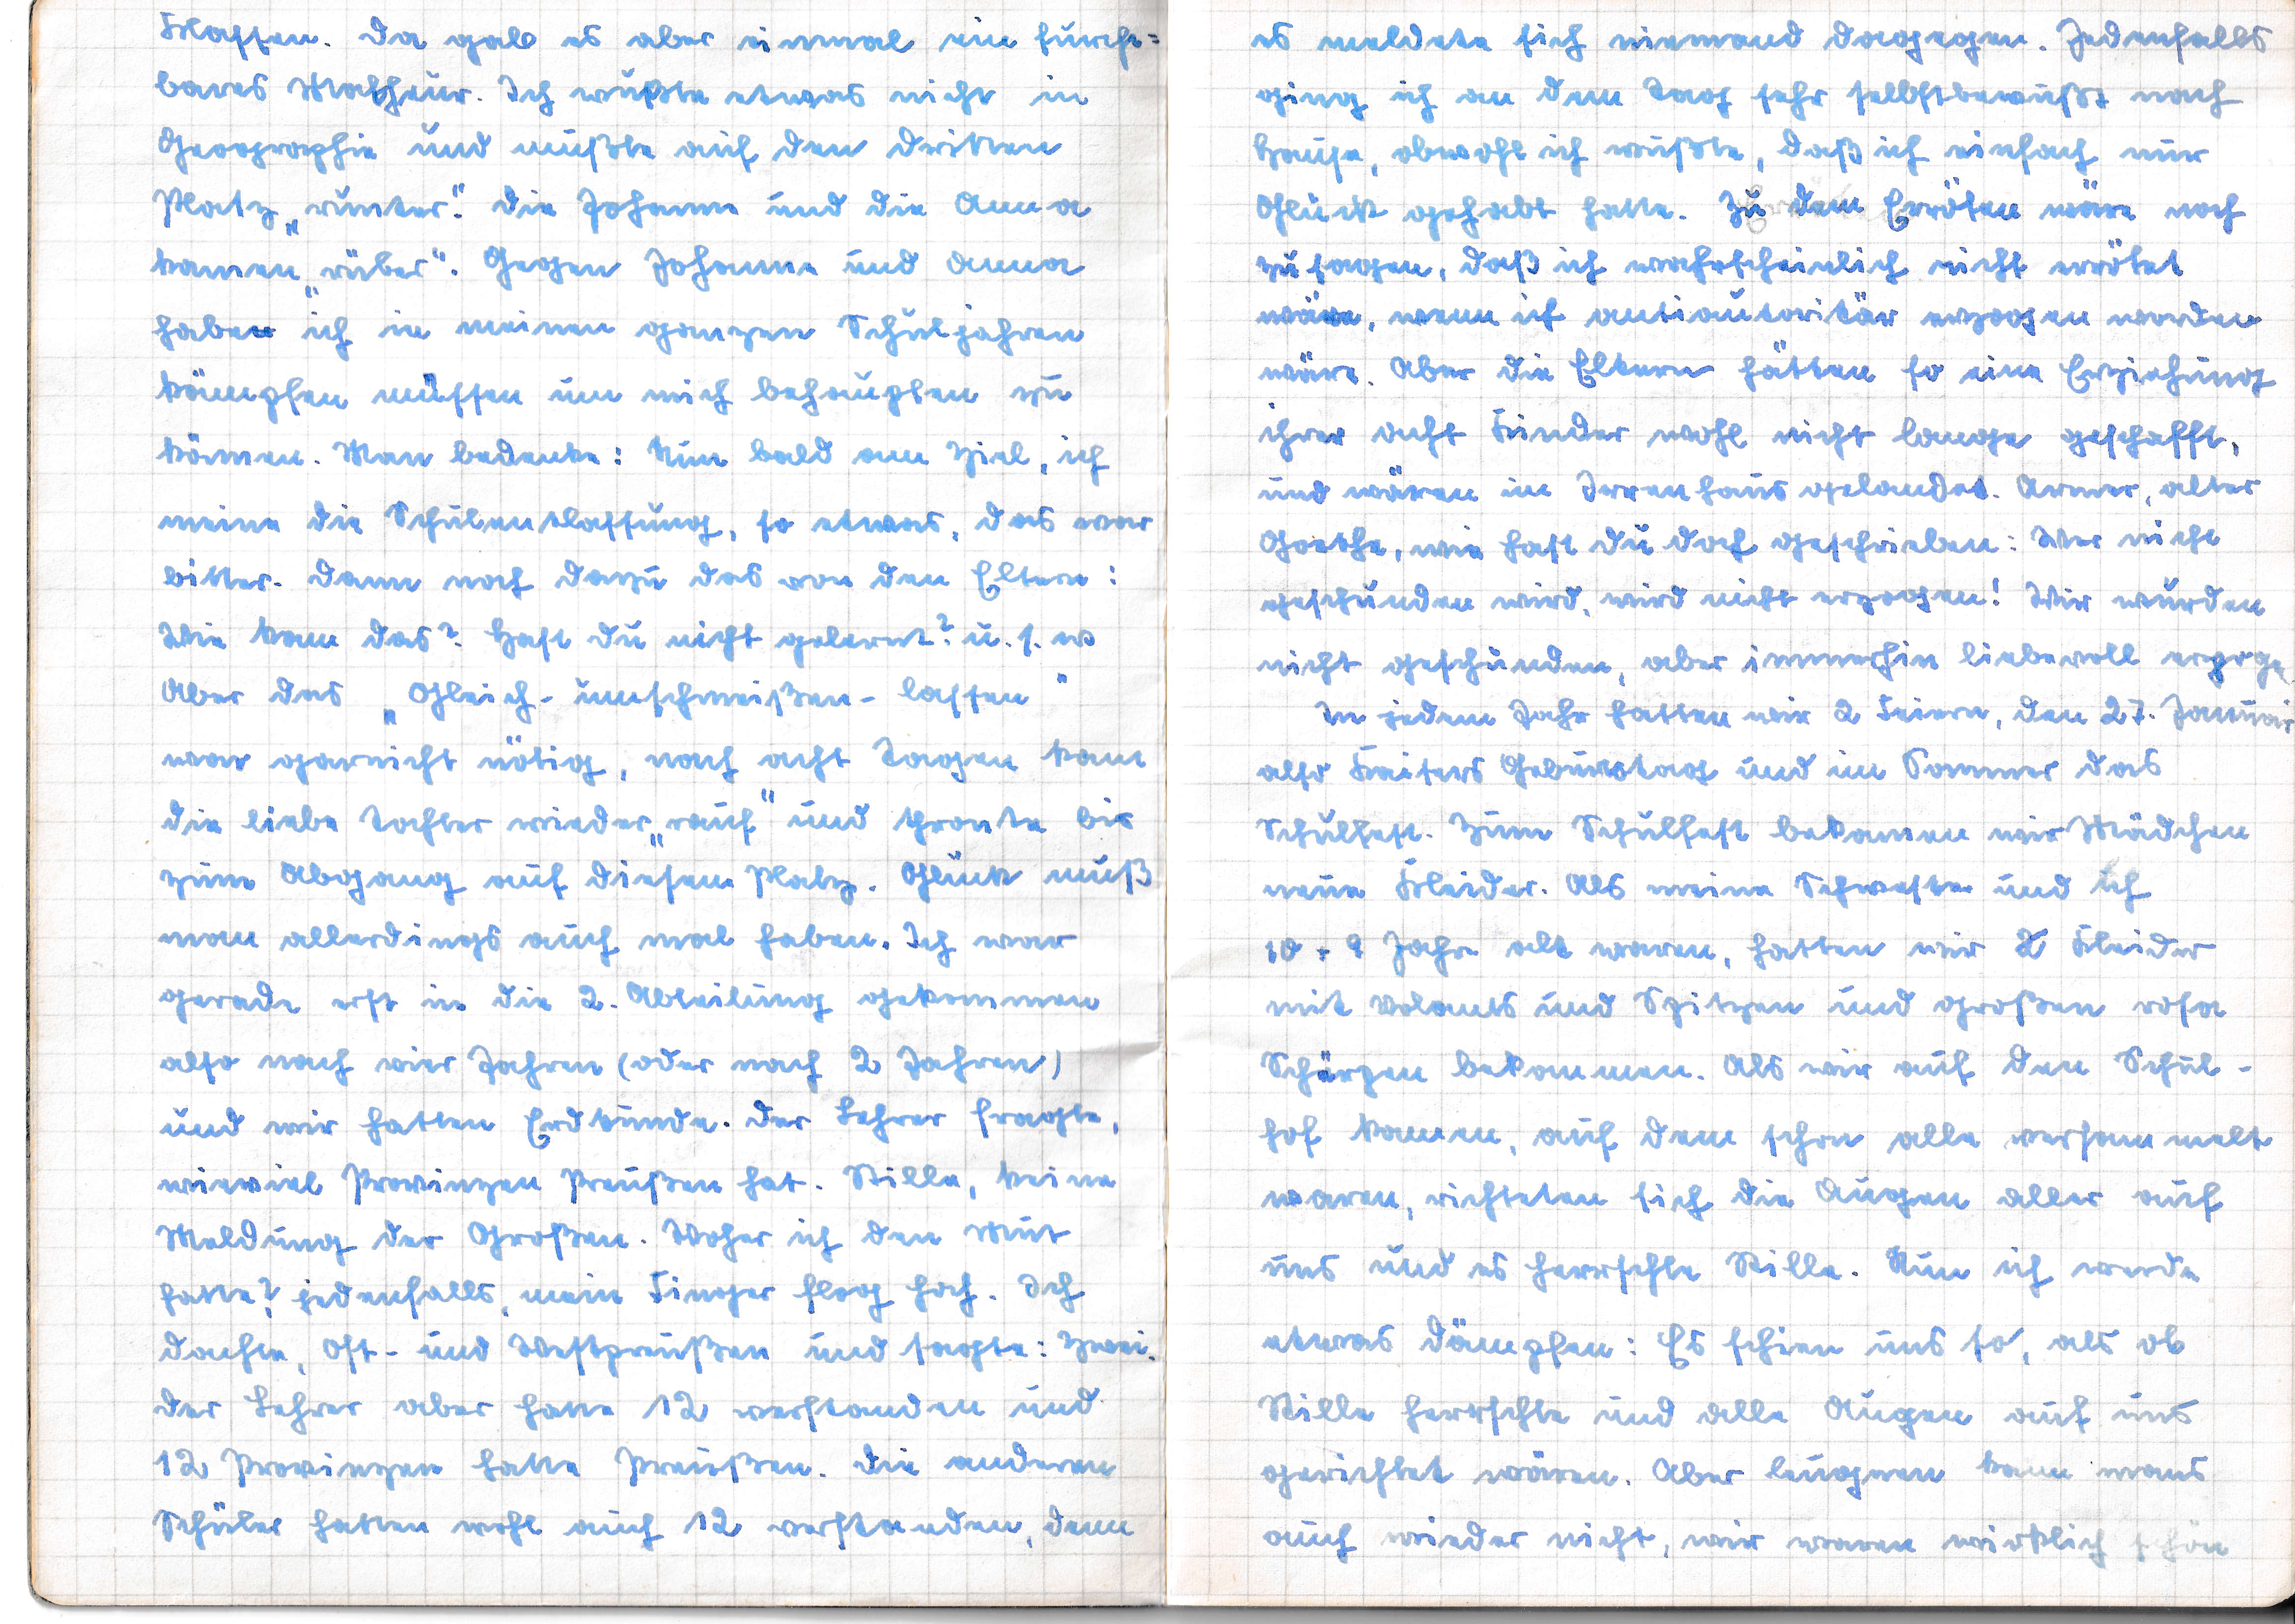 Klassen. Da gab es aber einmal ein furcht=
bares Malheur. Ich wußte etwas nicht in
Geographie und mußte auf den dritten
Platz „runter". Die Johanne und die Anna
kamen „rüber". Gegen Johanne und Anna
habe ich in meinen ganzen Schuljahren
kämpfen müssen um mich behaupten zu
können. Man bedenke: Nun bald am Ziel, ich
meine die Schulentlassung, so etwas, das war
bitter. Dann noch dazu das von den Eltern:
Wie kam das? Hast du nicht gelernt? u. s. w
Aber das „Gleich-umschmeißen-lassen"
war garnicht nötig, nach acht Tagen kam
die liebe Tochter wieder „rauf" und thronte bis
zum Abgang auf diesem Platz. Glück muß
man allerdings auch mal haben. Ich war
gerade erst in die 2. Abteilung gekommen
also nach vier Jahren (oder nach 2 Jahren)
und wir hatten Erdkunde. Der Lehrer fragte,
wieviel Provinzen Preußen hat. Stille, keine
Meldung der Großen. Woher ich den Mut
hatte? jedenfalls, mein Finger flog hoch. Ich
dachte, Ost- und Westpreußen und sagte: Zwei.
Der Lehrer aber hatte 12 verstanden und
12 Provinzen hatte Preußen. Die anderen
Schüler hatten wohl auch 12 verstanden, denn
es meldete sich niemand dagegen. Jedenfalls
ging ich an dem Tag sehr selbstbewußt nach
Hause, obwohl ich wußte, daß ich einfach nur
Glück gehabt hatte. Zu dem Erröten wäre noch
zu sagen, daß ich wahrscheinlich nicht errötet
wäre, wenn ich antiautoritär erzogen worden
wäre. Aber die Eltern hätten so eine Erziehung
ihrer acht Kinder wohl nicht lange geschafft,
und wären im Irrenhaus gelandet. Armer, alter
Goethe, wie hast du doch geschrieben: Wer nicht
geschunden wird, wird nicht erzogen! Wir wurden
nicht geschunden, aber immerhin liebevoll erzoge
In jedem Jahr hatten wir 2 Feiern, den 27. Januar,
also Kaisers Geburtstag und im Sommer das
Schulfest. Zum Schulfest bekamen wir Mädchen
neue Kleider. Als meine Schwester und ich
10 + 9 Jahre alt waren, hatten wir 2 Kleider
mit Volants und Spitzen und großen rosa
Schärpen bekommen. Als wir auf den Schul-
hof kamen, auf dem schon alle versammelt
waren, richteten sich die Augen aller auf
uns und es herrschte Stille. Nun ich werde
etwas dämpfen: Es schien uns so, als ob
Stille herrschte und alle Augen auf uns
gerichtet wären. Aber leugnen kann mans
auch wieder nicht, wir waren wirklich schön